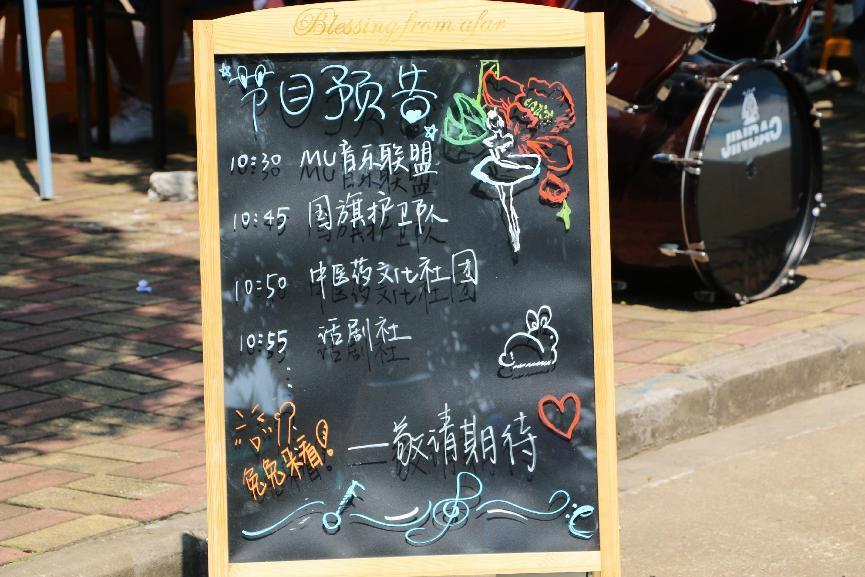 Blessing from afar
节目预告
10:30 MU音乐联盟
10:45 国旗护卫队
10:50 中医药文化社团
10:55 话剧社
⋮
兔兔来看!
—敬请期待
JINBAO